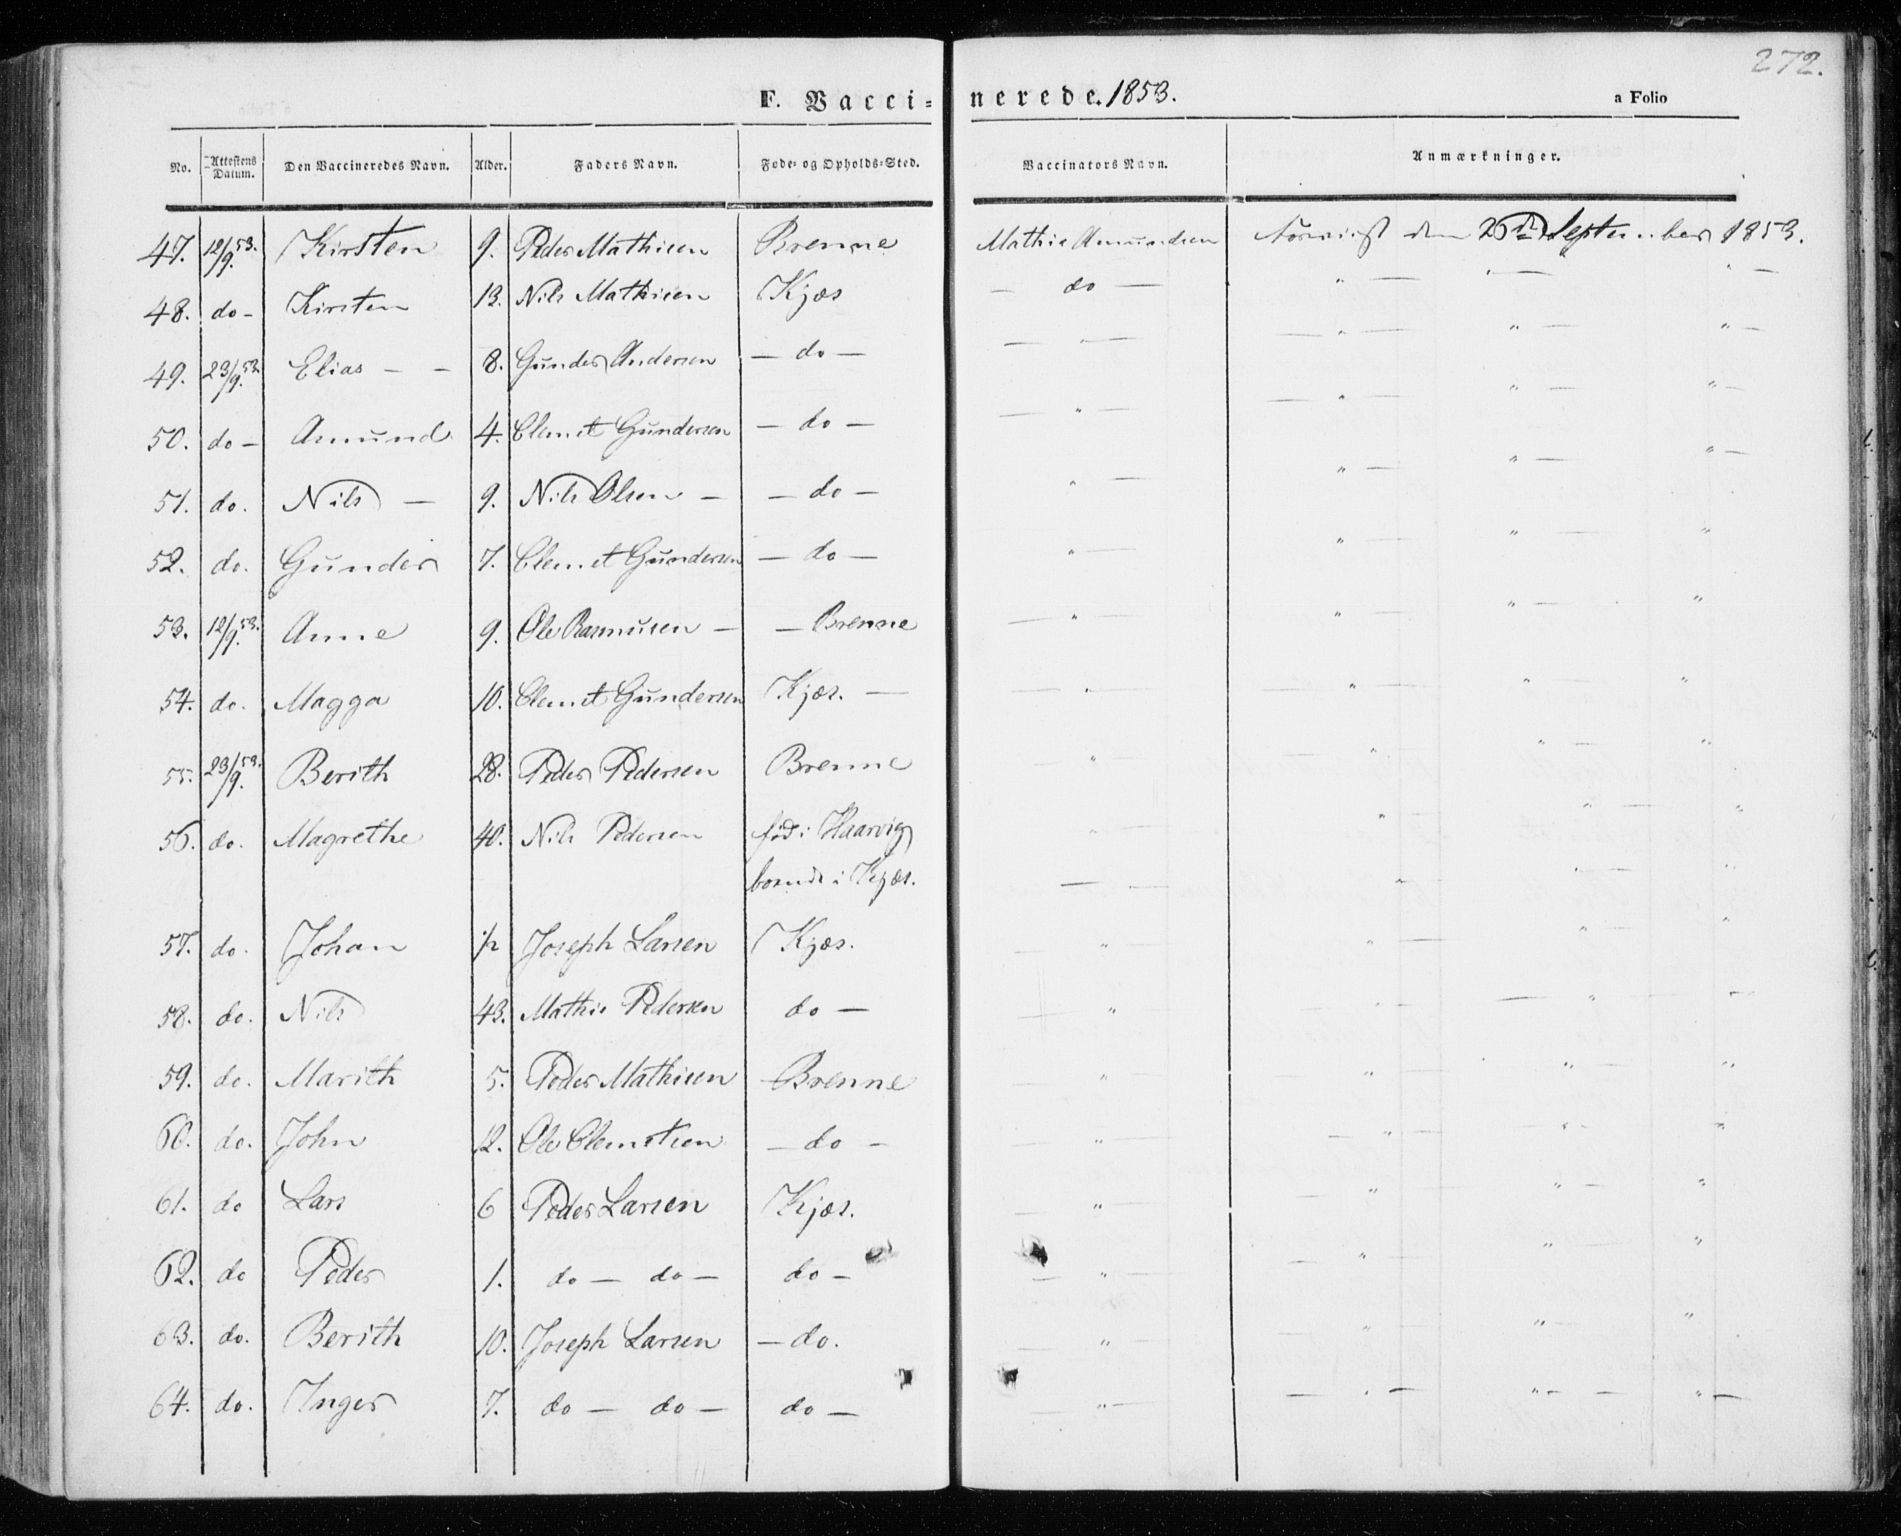 272.
F. Vaccinerede. 1853.
a Folio
No. Attestens Datum. Den Vaccineredes Navn. Alder. Faders Navn. Føde- og Opholds-Sted. Vaccinators Navn. Anmærkninger.
47. 12/9 53. Kirsten 9. Peder Mathisen Brenne Mathis Amundsen den 26de September 1853.
48. do - Kirsten 13. Nils Mathisen Kjæs - do — " — " — " —
49. 23/9 53. Elias - - 8. Gunder Andersen — do — — " — — " — " — " —
50. do - Amund 4. Clemet Gundersen — do — — " — — " — " — " —
51. do. Nils — 9. Nils Olsen — — do — " — " — " — " —
52. do. Gunder 7. Clemet Gundersen — do — " — " — " — "
53. 12/9 53. Anne 9. Ole Rasmusen — — Brenne — " — " — " — "
54. do. Magga 10. Clemet Gundersen Kjæs. — — " — — " — " — "
55. 23/9 53. Berith 28. Peder Pedersen Brenne " " — " — "
56. do. Magrethe 40. Nils Pedersen fød i Haarvig " " — " — "
boende i Kjæs. — " — " — " "
57. do. Johan 1/2 Joseph Larsen Kjæs. " — " — " — "
58. do. Nils 43. Mathis Pedersen do — — " — " — " — "
59. do. Marith 5. Peder Mathisen Brenne — " — " — " — "
60. do. John 12. Ole Clemetsen — do — — " — — " — " — "
61. do Lars 6 Peder Larsen Kjæs. — " — " — " — "
62. do Peder 1. do — do — do — — " — " — " — "
63. do. Berith 10. Joseph Larsen — do. — " " — " — "
64. do. Inger 7. do — do — do — " — — " — " — — " —